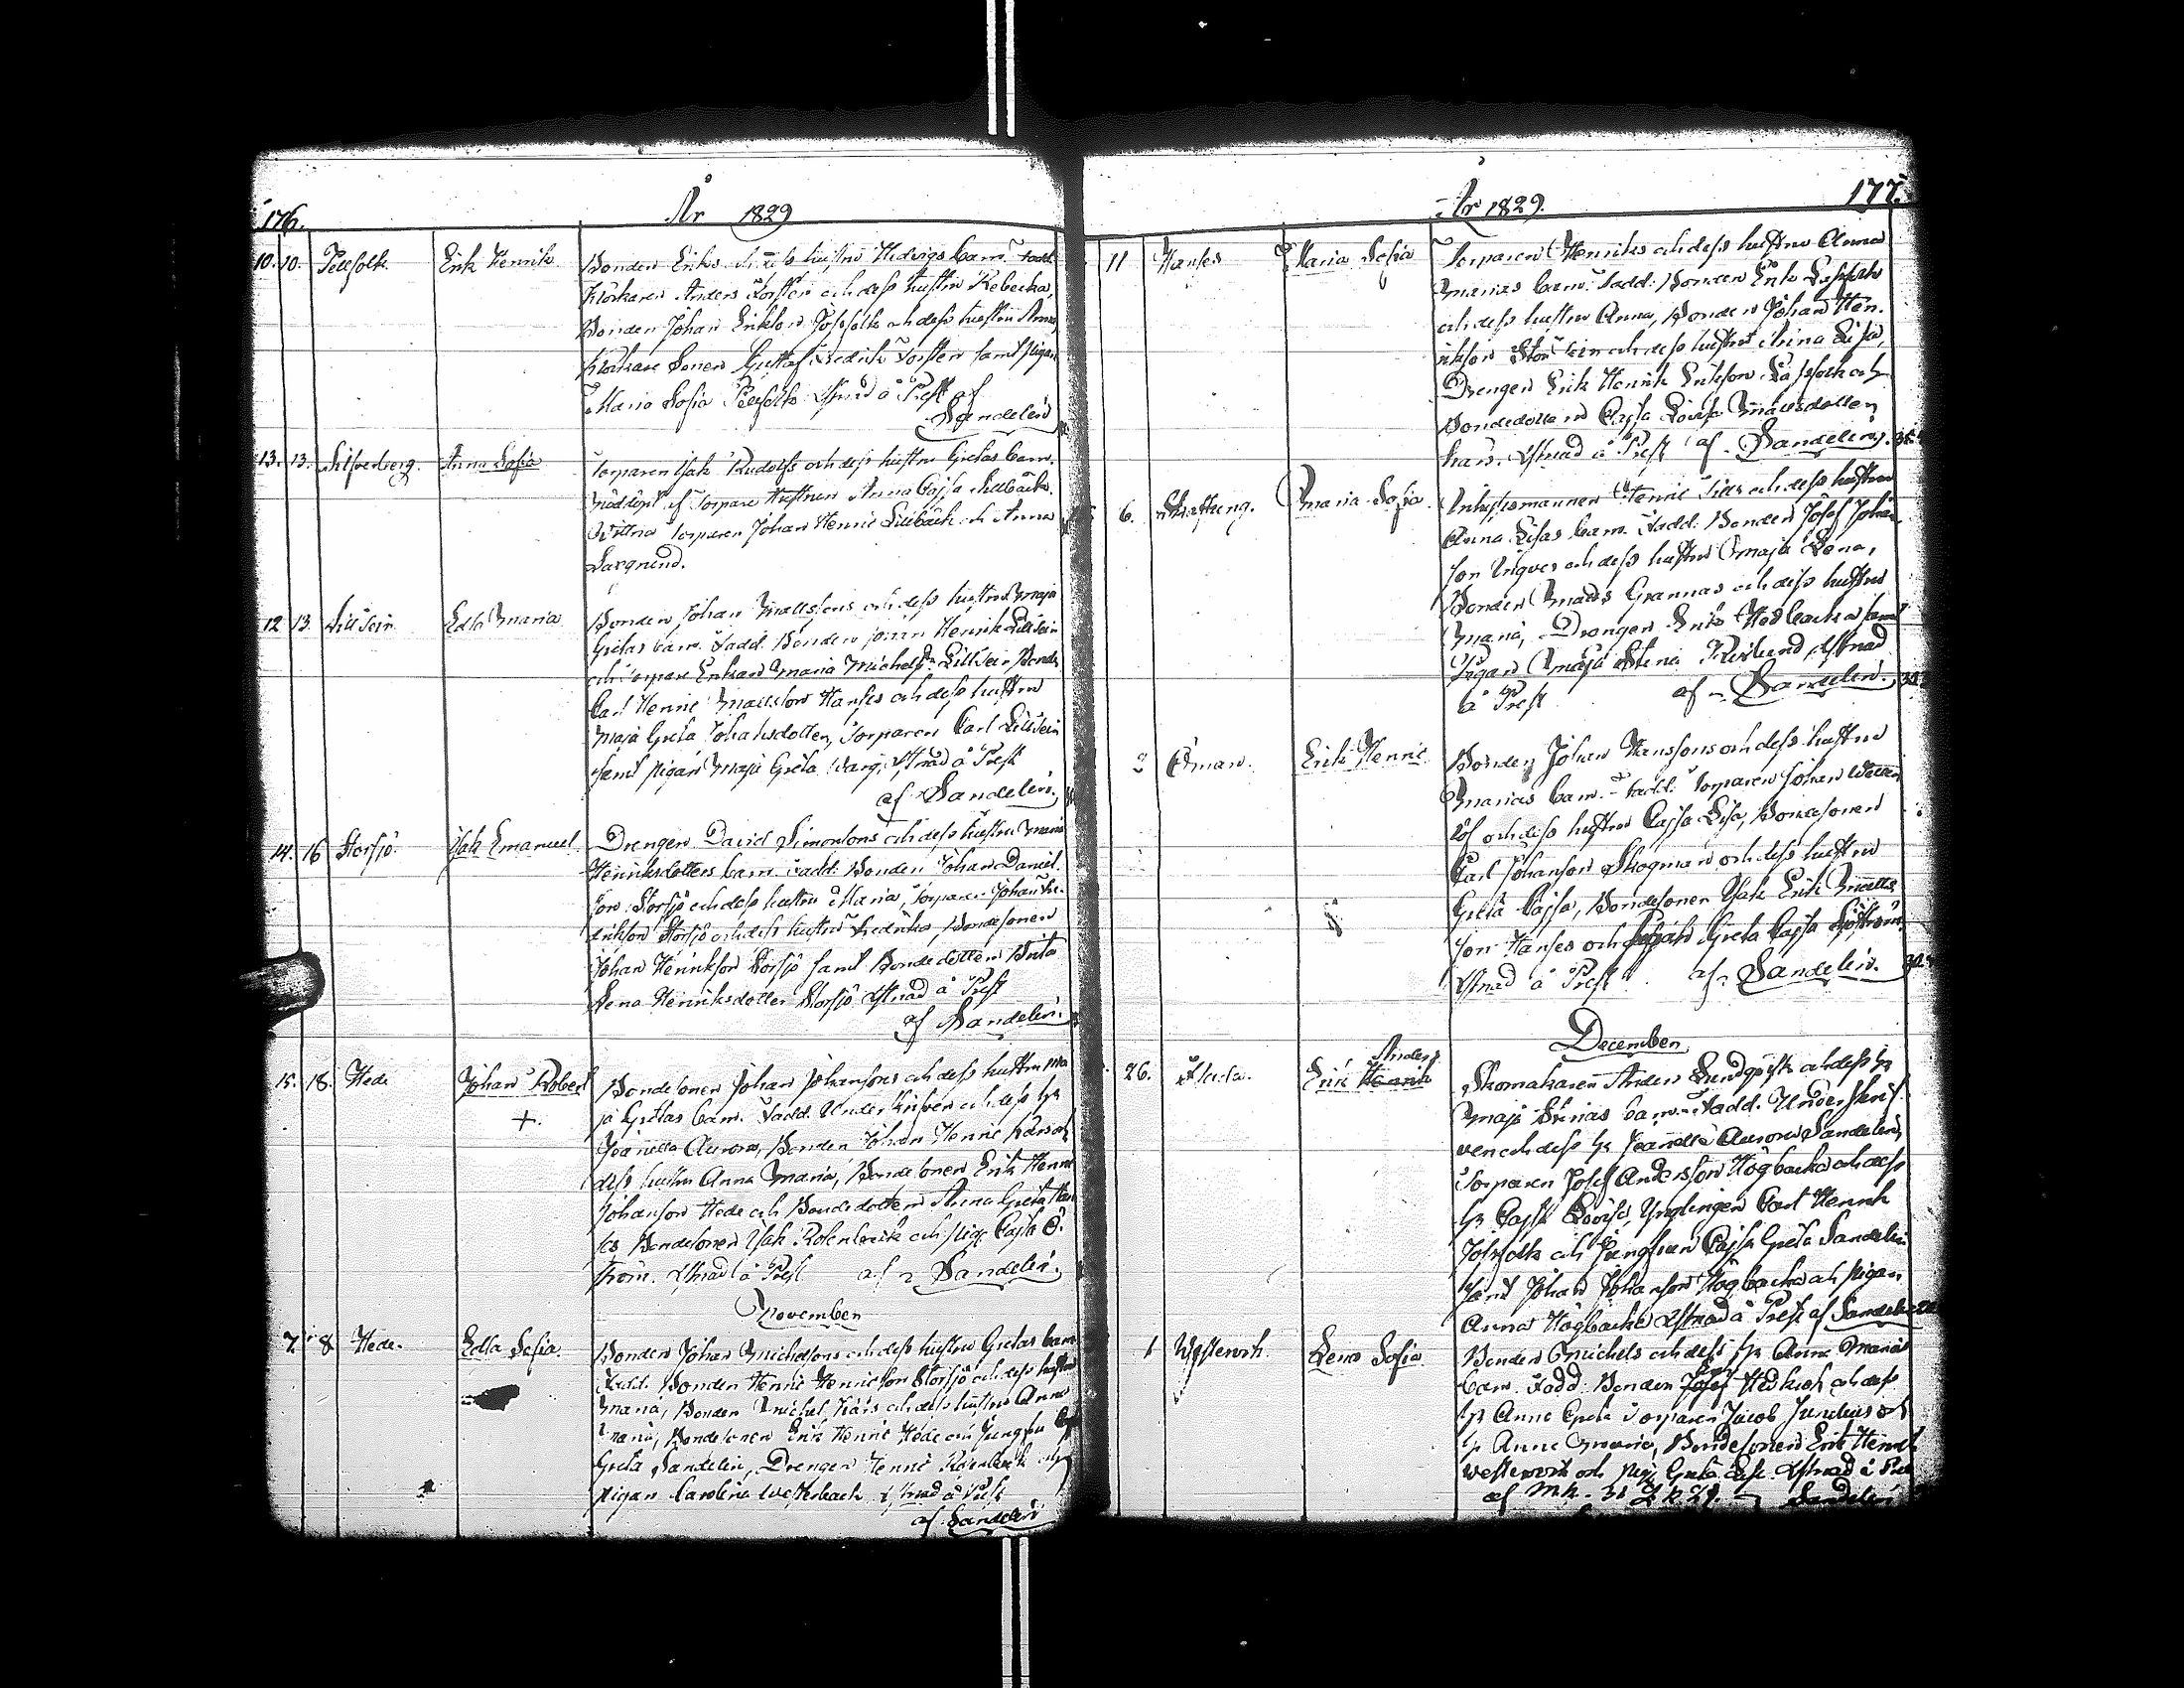 176.
År 1829
10. 10. Pellfolk Erik Henrik Bonden Eriks och dess hustru Hedvigs barn. Fadd.
Klockaren Anders Forssten och dess hustru Rebecka,
Bonden Johan Erikson Jossfolk och dess hustru Anna,
Klockare Sonen Gustaf Fredrik Forssten samt Pigan
Maria Sofia Pellfolk Xstnad a Prest af
Sandelin
13. 13. Silfverberg. Anna Sofia Torparen Isak Rudolfs och dess hustru Gretas barn.
Nöddöpt af Torpare Hustrun Anna Cajsa Lillbäck.
Wittna Torparen Johan Henric Lillbäck och Anna
Largrund.
12 13 Lill Sein Edla Maria Bonden Johan Mattssons och dess hustru Maja
Gretas barn. Fadd. Bonden Johan Henrik Lill Sein
och Torpare Enkan Maria Michelsdr Lill Sein Bonden
Carl Henric Mattsson Hanses och dess hustru
Maja Greta Johansdotter, Torparen Carl Lill Sein
samt pigan Maja Greta Warg, Xstnad a Prest
af Sandelin.
14. 16 Storsjö. Isak Emanuel Drengen David Simonsons och dess hustru Maria
Henriksdotters barn. Fadd. Bonden Johan Daniel
son Storsjö och dess hustru Maria, Torparen Johan
Erikson Storsjö och dess hustru Fredrika, Bondesonen
Johan Henrikson Storsjö samt Bondedottern Brita
Lena Henriksdotter Storsjö Xstnad a Prest
af Sandelin.
15. 18. Hede Johan Robert Bondesonen Johan Johansons och dess hustru Ma
+. ja Gretas barn. Fadd. Underskrifven och dess hr
Jeanette Aurora, Bonden Johan Henric Kars och
dess hustru Anna Maria, Bondesonen Erik Henric
Johanson Hede och Bondedottern Anna Greta Han
ses Bondesonen Isak Rosenback och pig. Cajsa Ö
ström. Xstnad a Prest af Sandelin.
November
7. 8 Hede. Edla Sofia. Bonden Johan Michelsons och dess hustru Gretas barn
Fadd. Bonden Henric Henricson Storsjö och dess hustru
Maria, Bonden Michel Kårs och dess hustru Anna
Maria, Bondesonen Erik Henric Hede och Jungfru
Greta Sandelin, Drengen Henric Rosenback och
pigan Carolina Westerback Xstnad a Prest
af Sandelin
177.
År 1829.
11 Hanses Maria Sofia Torparen Henriks och dess hustru Anna
Marias barn. Fadd. Bonden Erik
och dess hustru Anna, Bonden Johan Hen.
rikson Stor Sein och dess hustru Stina Lisa,
Drengen Erik Henrik Erikson och
Bondedottern Cajsa Lovisa Mattsdotter
Kårs. Xstnad a Prest af Sandelin.
6. Skaftung. Maria Sofia Inhysismannen Henric Sills och dess hustru
Anna Lisas barn. Fadd. Bonden Josef Johan
son Ingves och dess hustru Maja Lena,
Bonden Matts Grannas och dess hustru
Maria, Drengen Erik Hedbacka samt
Pigan Maja Stina Xstnad
a Prest af Sandelin.
2 Öman. Erik Henric Bonden Johan Hanssons och dess hustru
Marias barn. Fadd. Torparen Johan
löf och dess hustru Cajsa Lisa, Bondesonen
Carl Johanson Skogman och dess hustru
Greta Cajsa, Bondesonen Isak Erik Matts
son Hanses och Pigan Greta Cajsa Sjöström
Xstnad a Prest af Sandelin.
December
Anders
26. Erik Henrik Skomakaren Anders Lundqvists och dess hr
Maja Stinas barn. Fadd. Underskrif.
ven och dess hr Jeanette Aurora Sandelin,
Torparen Josef Andersson Högbacka och dess
hr Cajsa Lovisa, Ynglingen Carl Henrik
Jofsfolk och Jungfrun Cajsa Greta Sandelin
samt Johan Johanson Högbacka och pigan
Anna Högbacka Xstnad a Prest af Sandelin
1 Westervik. Lena Sofia Bonden Michels och dess hr Anna Marias
barn. Fadd. Bonden Josef Hedkrok och dess
hr Anna Greta Torparen Jacob Junelius och
hr Anna Maria, Bondesonen Erik Henrik
Westervik och pig. Greta Xstnad a Prest
af Sandelin